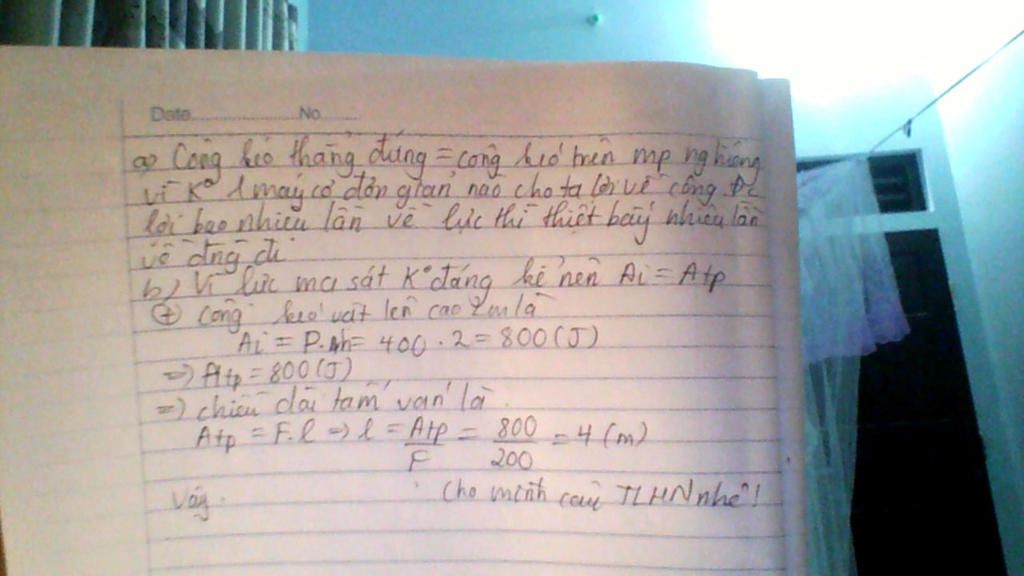 Date No
a) Công kéo thẳng đứng = công kéo trên mp nghiêng
vì K° 1 máy cơ đơn giản nào cho ta lợi về công. Đc
lợi bao nhiêu lần về lực thì thiệt bấy nhiêu lần
về đng đi
b) Vì lực ma sát K° đáng kể nên Ai = Atp
+ Công kéo vật lên cao 2m là
Ai = P.h = 400 . 2 = 800 (J)
=> Atp = 800 (J)
=> chiều dài tấm ván là
Atp = F.l => l = Atp/F = 800/200 = 4 (m)
Vậy. Cho mình câu TLHN nhé!